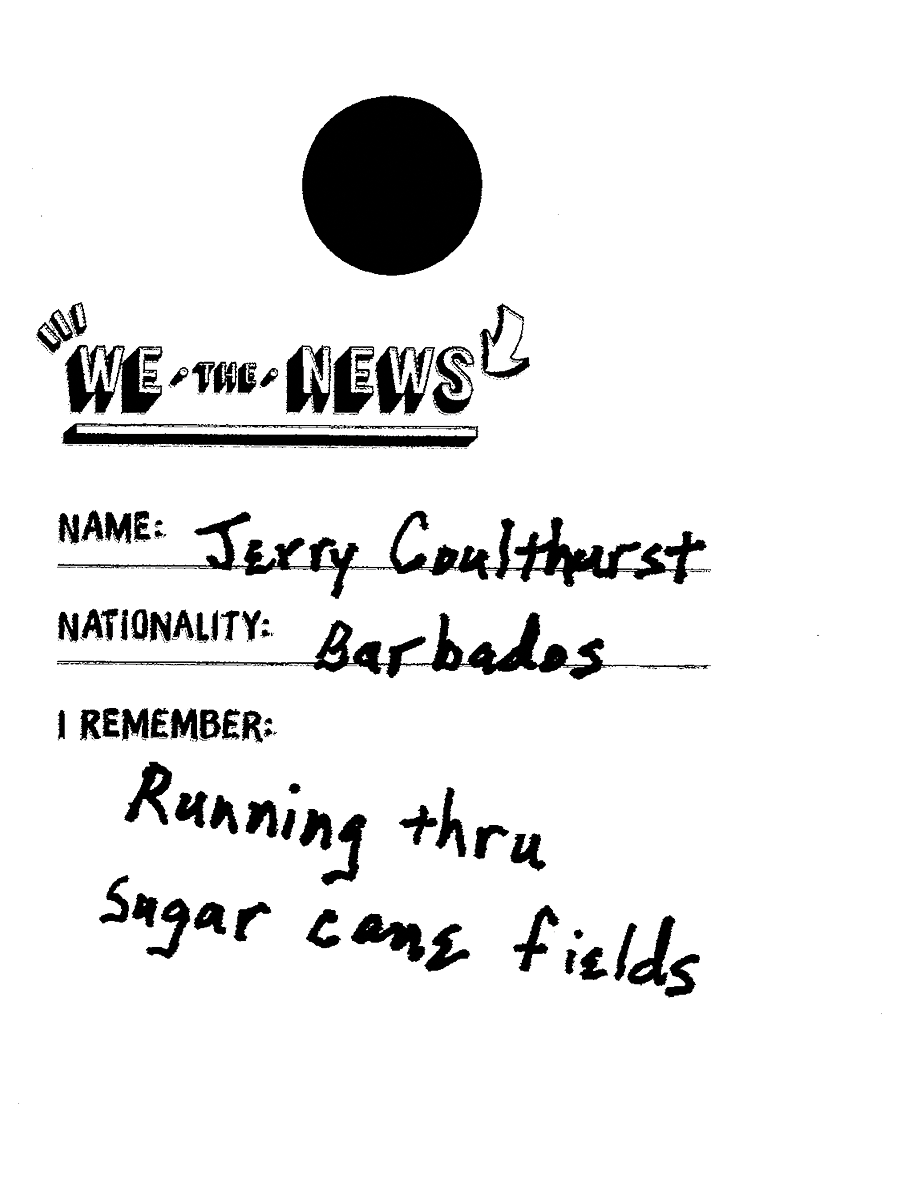 WE · THE · NEWS
NAME: Jerry Coulthurst
NATIONALITY: Barbados
I REMEMBER:
Running thru
Sugar cane fields